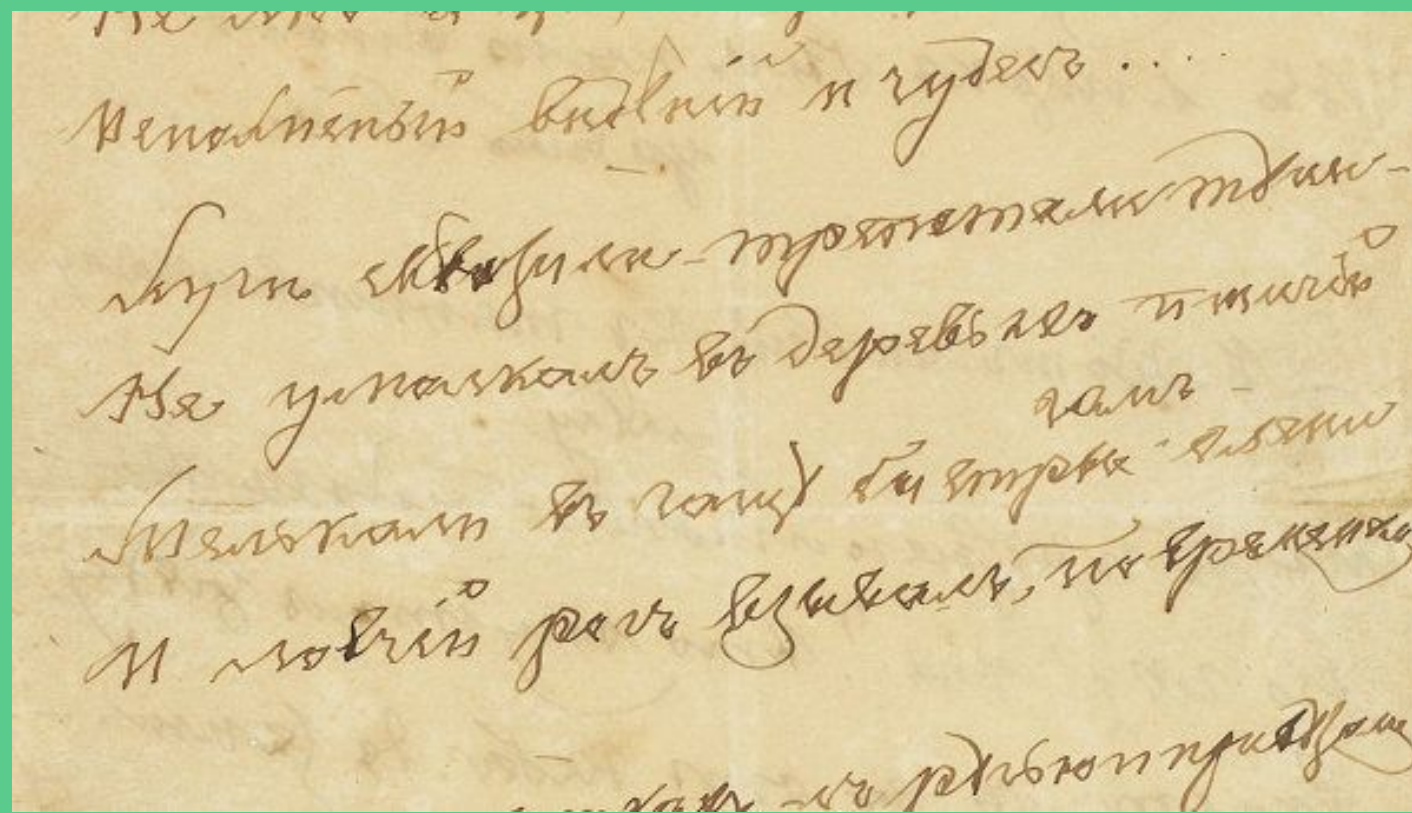 Исполненный видѣній и чудесъ ....
Лучи сквозили - трепетали тѣни -
Не умолкалъ въ деревьяхъ птичій
гамъ -
Мелькали въ чащѣ быстрые олени
И ловчій рогъ взывалъ, по временамъ